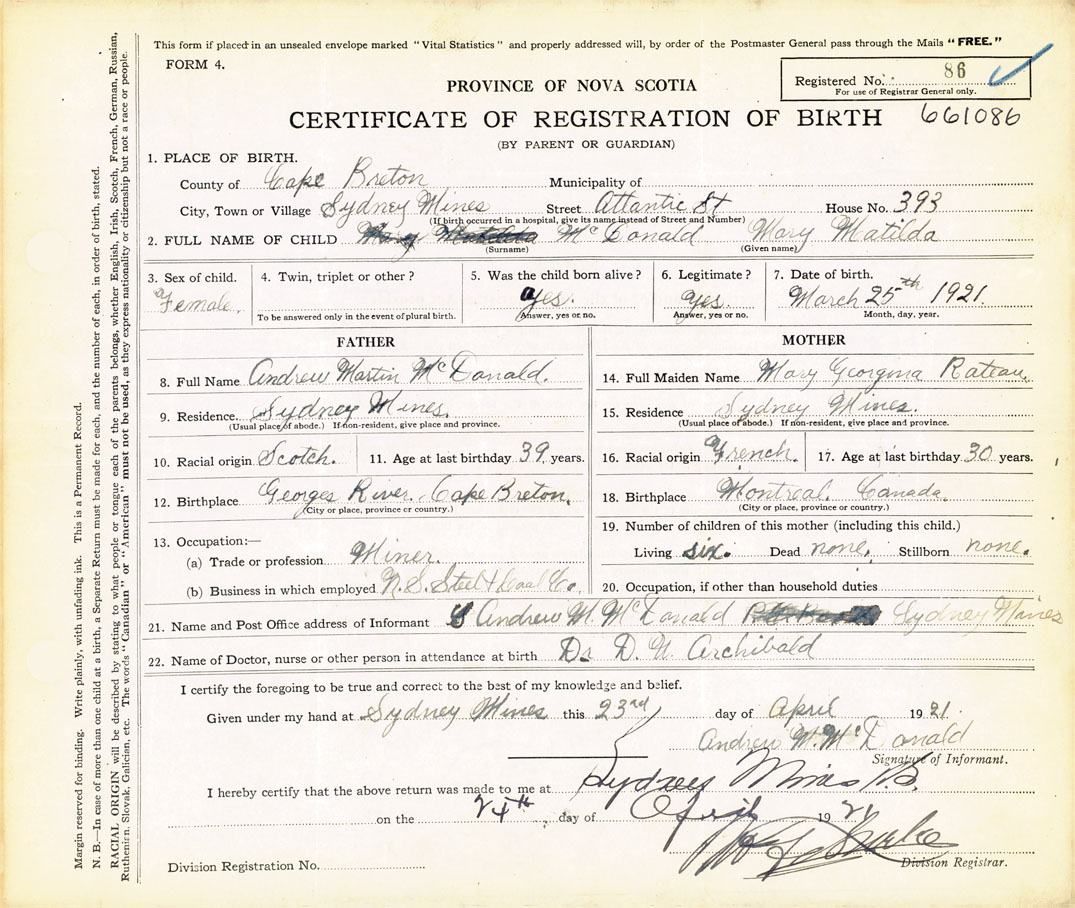 This form if placed in an unsealed envelope marked "Vital Statistics" and properly addressed will, by order of the Postmaster General pass through the Mails "FREE."
FORM 4.
Registered No. 86
For use of Registrar General only.
PROVINCE OF NOVA SCOTIA
CERTIFICATE OF REGISTRATION OF BIRTH 661086
(BY PARENT OR GUARDIAN)
1. PLACE OF BIRTH.
County of Cape Breton Municipality of
City, Town or Village Sydney Mines Street Atlantic St House No. 393
(If birth occurred in a hospital, give its name instead of Street and Number)
2. FULL NAME OF CHILD Mary Matilda McDonald Mary Matilda
(Surname) (Given name)
3. Sex of child. 4. Twin, triplet or other? 5. Was the child born alive? 6. Legitimate? 7. Date of birth.
Female. Yes. Yes. March 25th 1921.
To be answered only in the event of plural birth. Answer, yes or no. Answer, yes or no. Month, day, year.
FATHER
8. Full Name Andrew Martin McDonald.
9. Residence. Sydney Mines.
(Usual place of abode.) If non-resident, give place and province.
10. Racial origin Scotch. 11. Age at last birthday 39 years.
12. Birthplace Georges River. Cape Breton.
(City or place, province or country.)
13. Occupation:—
(a) Trade or profession Miner.
(b) Business in which employed N. S. Steel & Coal Co.
MOTHER
14. Full Maiden Name Mary Georgina Rateau
15. Residence Sydney Mines.
(Usual place of abode.) If non-resident, give place and province.
16. Racial origin French. 17. Age at last birthday 30 years.
18. Birthplace Montreal. Canada.
(City or place, province or country.)
19. Number of children of this mother (including this child.)
Living six. Dead none. Stillborn none.
20. Occupation, if other than household duties
21. Name and Post Office address of Informant Andrew M. McDonald Sydney Mines
22. Name of Doctor, nurse or other person in attendance at birth Dr D. W. Archibald
I certify the foregoing to be true and correct to the best of my knowledge and belief.
Given under my hand at Sydney Mines this 23rd day of April 1921.
Andrew M. McDonald
Signature of Informant.
I hereby certify that the above return was made to me at Sydney Mines
on the 24th day of April 1921
Division Registrar.
Division Registration No.
Margin reserved for binding. Write plainly, with unfading ink. This is a Permanent Record.
N. B.—In case of more than one child at a birth, a Separate Return must be made for each, and the number of each, in order of birth, stated.
RACIAL ORIGIN will be described by stating to what people or tongue each of the parents belongs, whether English, Irish, Scotch, French, German, Russian,
Ruthenian, Slovak, Galician, etc. The words "Canadian" or "American" must not be used, as they express nationality or citizenship but not a race or people.